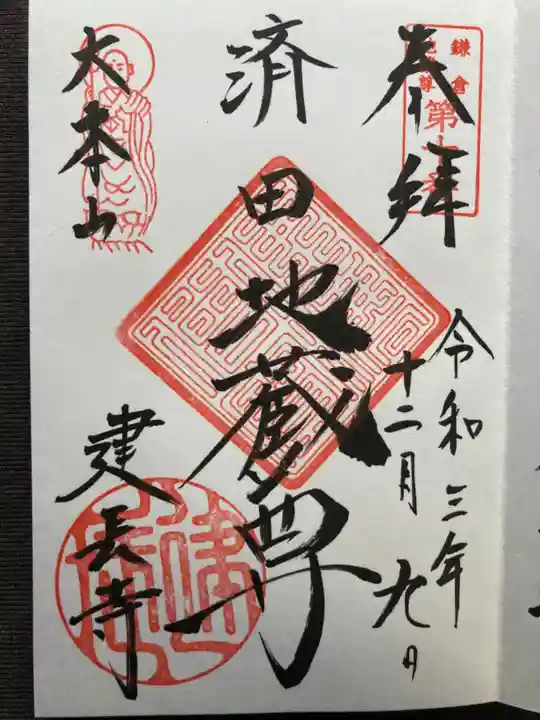 奉拝
鎌倉
地蔵尊
第
令和三年
十二月九日
済田地蔵尊
大本山
建長寺